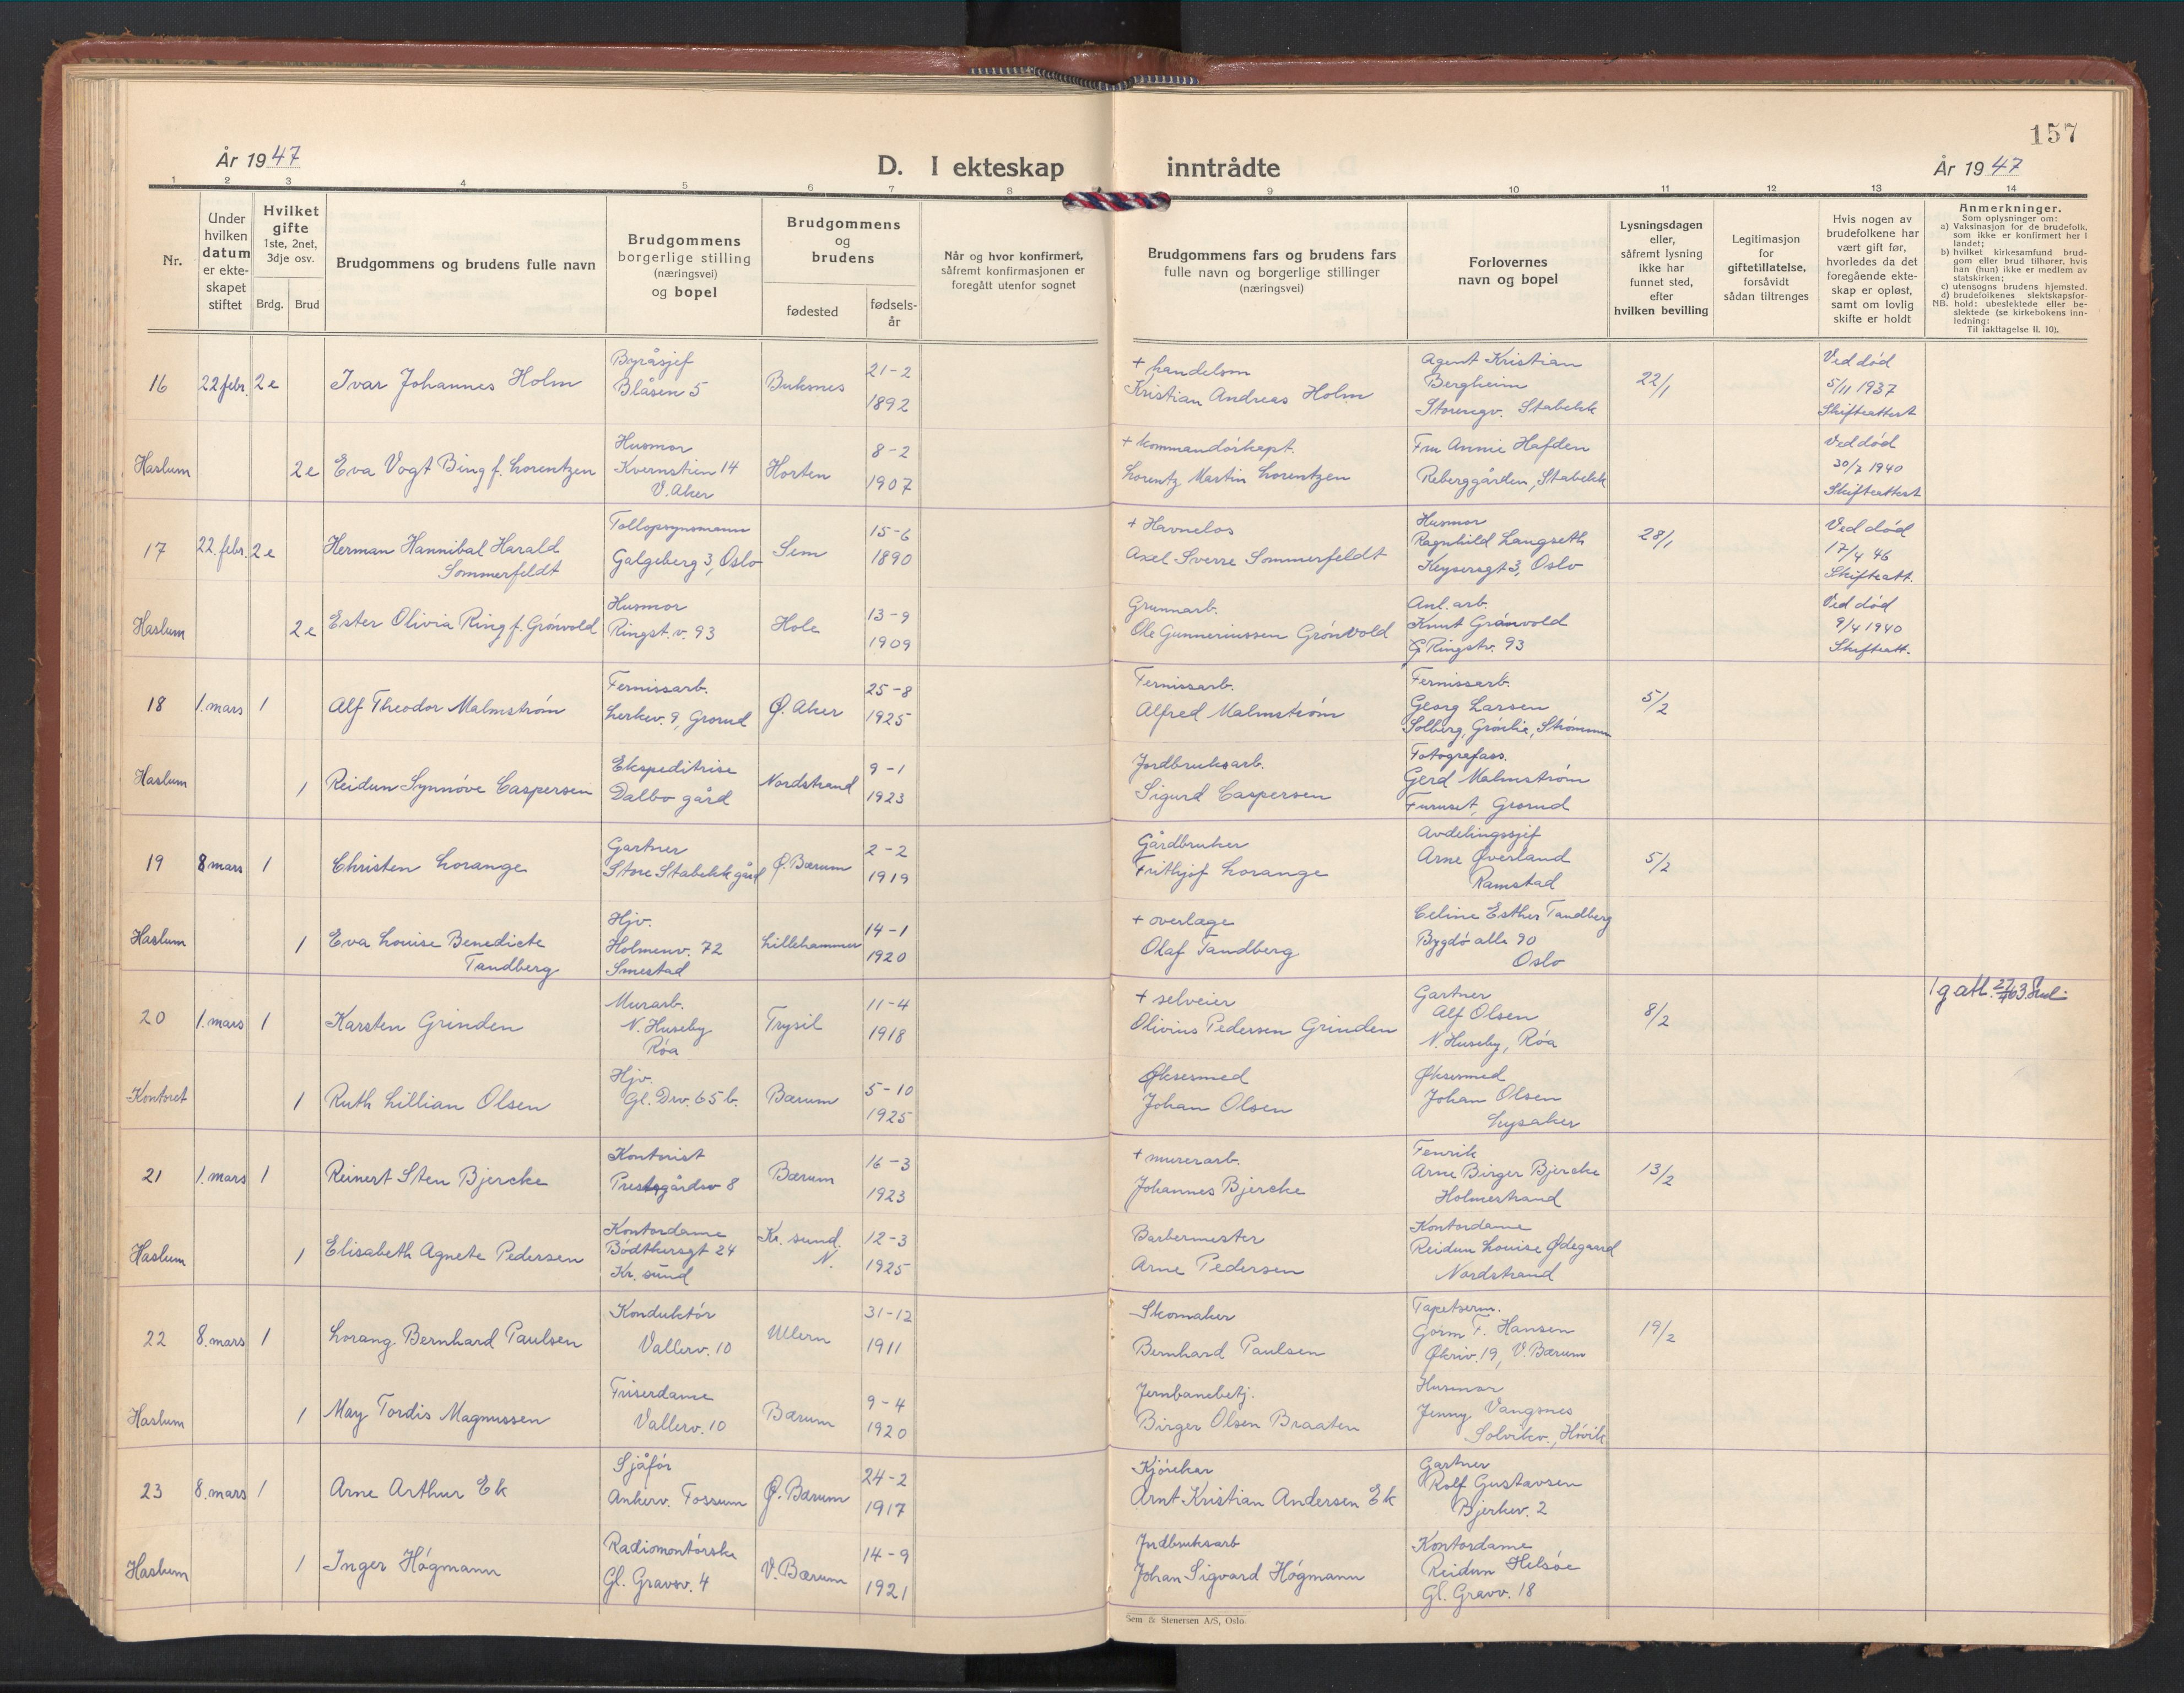 157
År 1947
D. I ekteskap inntrådte
År 1947
1 2 3 4 5 6 7 8 9 10 11 12 13 14
Nr.
Under hvilken datum er ekteskapet stiftet
Hvilket gifte
1ste, 2net, 3dje osv.
Brdg. Brud
Brudgommens og brudens fulle navn
Brudgommens
borgerlige stilling
(næringsvei)
og bopel
Brudgommens
og
brudens
fødested
fødselsår
Når og hvor konfirmert,
såfremt konfirmasjonen er
foregått utenfor sognet
Brudgommens fars og brudens fars
fulle navn og borgerlige stillinger
(næringsvei)
Forlovernes
navn og bopel
Lysningsdagen
eller,
såfremt lysning
ikke har
funnet sted,
efter
hvilken bevilling
Legitimasjon
for
giftetillatelse,
forsåvidt
sådan tiltrenges
Hvis nogen av
brudefolkene har
vært gift før,
hvorledes da det
foregående ekte-
skap er opløst,
samt om lovlig
skifte er holdt
Anmerkninger.
Som oplysninger om:
a) Vaksinasjon for de brudefolk,
som ikke er konfirmert her i
landet;
b) hvilket kirkesamfund brud-
gom eller brud tilhører, hvis
han (hun) ikke er medlem av
statskirken;
c) utensogns brudens hjemsted.
d) brudefolkenes slektskapsfor-
NB. hold: ubeslektede eller be-
slektede (se kirkebokens inn-
ledning:
Til iakttagelse II. 10).
16 22 febr. 2e Ivar Johannes Holm
Byråsjef
Blåsen 5
Buksnes
21-2
1892
+ handelsm
Kristian Andreas Holm
Agent Kristian
Bergheim
Storengv. Stabekk
22/1
Ved død
5/11 1937
Skifteattest
Haslum 2e Eva Vogt Bing f. Lorentzen
Husmor
Kvernstien 14
V. Aker
Horten
8-2
1907
+ kommandørkapt.
Lorentz Martin Lorentzen
Fru Annie Hafden
Reberggården, Stabekk
Ved død
30/7 1940
Skifteattest
17 22. febr. 2e Herman Hannibal Harald
Sommerfeldt
Tollopsynsmann
Galgeberg 3, Oslo
Sem
15-6
1890
+ Havnelos
Axel Sverre Sommerfeldt
Husmor
Ragnhild Langseth
Keysersgt 3, Oslo
28/1
Ved død
17/4 46
Skifteatt.
Haslum 2e Ester Olivia Ring f. Grönvold
Husmor
Ringst.v. 93
Hole
13-9
1909
Grunnarb.
Ole Gunneriussen Grönvold
Anl. arb.
Knut Grönvold
Ringstv. 93
Ved død
9/4 1940
Skifteatt.
18 1. mars 1 Alf Theodor Malmström
Fernissarb.
Lerkev. 9, Grorud
Ø. Aker
25-8
1925
Fernissarb.
Alfred Malmström
Fernissarb.
Georg Larsen
Solberg, Grönlie, Strömmen
5/2
Haslum 1 Reidun Synnöve Caspersen
Ekspeditrise
Dalbo gård
Nordstrand
9-1
1923
Jordbruksarb.
Sigurd Caspersen
Fotografass.
Gerd Malmström
Furuset, Grorud
19 8 mars 1 Christen Lorange
Gartner
Store Stabekk gård
Ø. Bærum
2-2
1919
Gårdbruker
Frithjof Lorange
Avdelingssjef
Arne Øverland
Ramstad
5/2
Haslum 1 Eva Louise Benedicte
Tandberg
Hjv.
Holmenv. 72
Smestad
Lillehammer
14-1
1920
+ overlæge
Olaf Tandberg
Celine Esther Tandberg
Bygdö alle 90
Oslo
20 1. mars 1 Karsten Grinden
Murarb.
N. Huseby
Röa
Trysil
11-4
1918
+ selveier
Olivius Pedersen Grinden
Gartner
Alf Olsen
N. Huseby, Röa
8/2
Kontoret 1 Ruth Lillian Olsen
Hjv.
Gl. Drv. 65 b.
Bærum
5-10
1925
Øksesmed
Johan Olsen
Øksesmed
Johan Olsen
Lysaker
21 1. mars 1 Reinert Sten Bjercke
Kontorist
Prestegårdsv 8
Bærum
16-3
1923
+ murerarb.
Johannes Bjercke
Fenrik
Arne Birger Bjercke
Holmestrand
13/2
Haslum 1 Elisabeth Agnete Pedersen
Kontordame
Bödtkersgt 24
Kr. sund
Kr. sund
N.
12-3
1925
Barbermester
Arne Pedersen
Kontordame
Reidun Louise Ødegaard
Nordstrand
22 8. mars 1 Lorang Bernhard Paulsen
Konduktör
Vallerv. 10
Ullern
31-12
1911
Skomaker
Bernhard Paulsen
Tapetserm.
Gorm F. Hansen
Økriv. 19, V. Bærum
19/2
Haslum 1 May Tordis Magnussen
Friserdame
Vallerv. 10
Bærum
9-4
1920
Jernbanebetj.
Birger Olsen Braaten
Husmor
Jenny Vangsnes
Solvikv., Hövik
23 8. mars 1 Arne Arthur Ek
Sjåför
Ankerv. Fossum
Ø. Bærum
24-2
1917
Kjörekar
Arnt Kristian Andersen Ek
Gartner
Rolf Gustavsen
Bjerkev. 2
Haslum 1 Inger Högmann
Radiomontörske
Gl. Gravsv. 4
V. Bærum
14-9
1921
Jordbruksarb
Johan Sigvard Högmann
Kontordame
Reidun Helsöe
Gl. Gravv. 18
Sem & Stenersen A/S, Oslo.